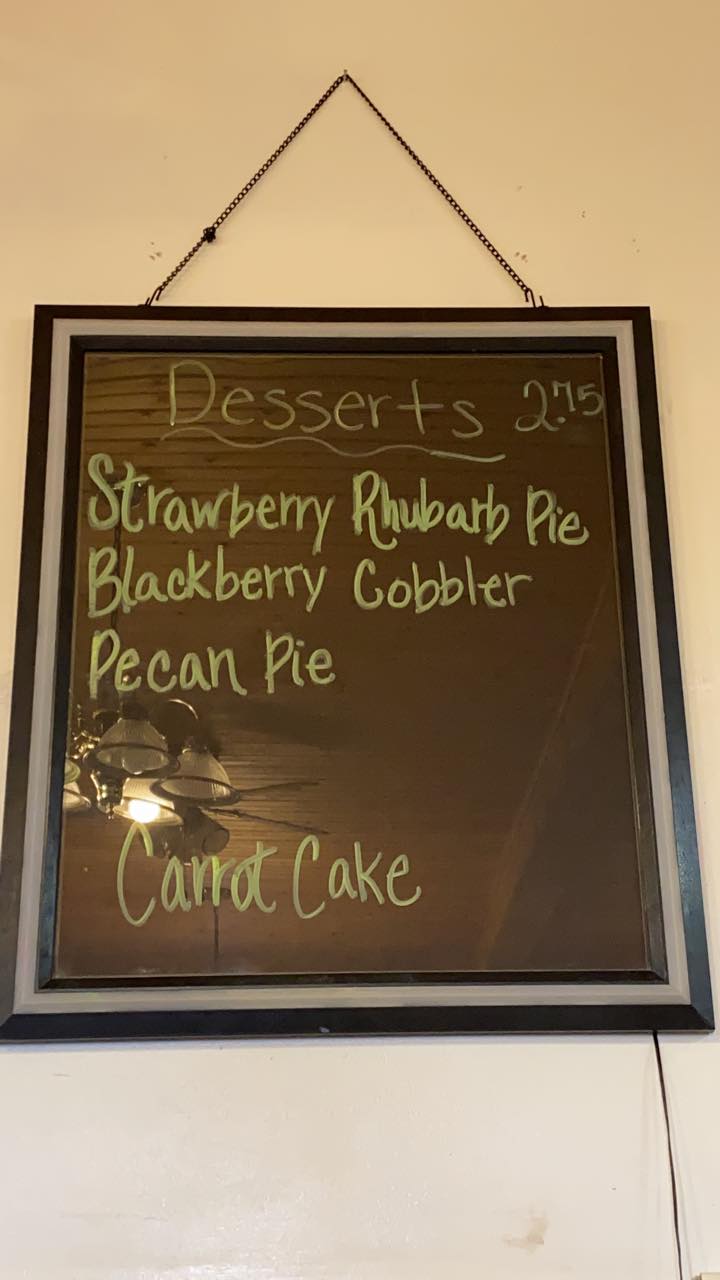 Desserts 2.75
Strawberry Rhubarb Pie
Blackberry Cobbler
Pecan Pie
Carrot Cake